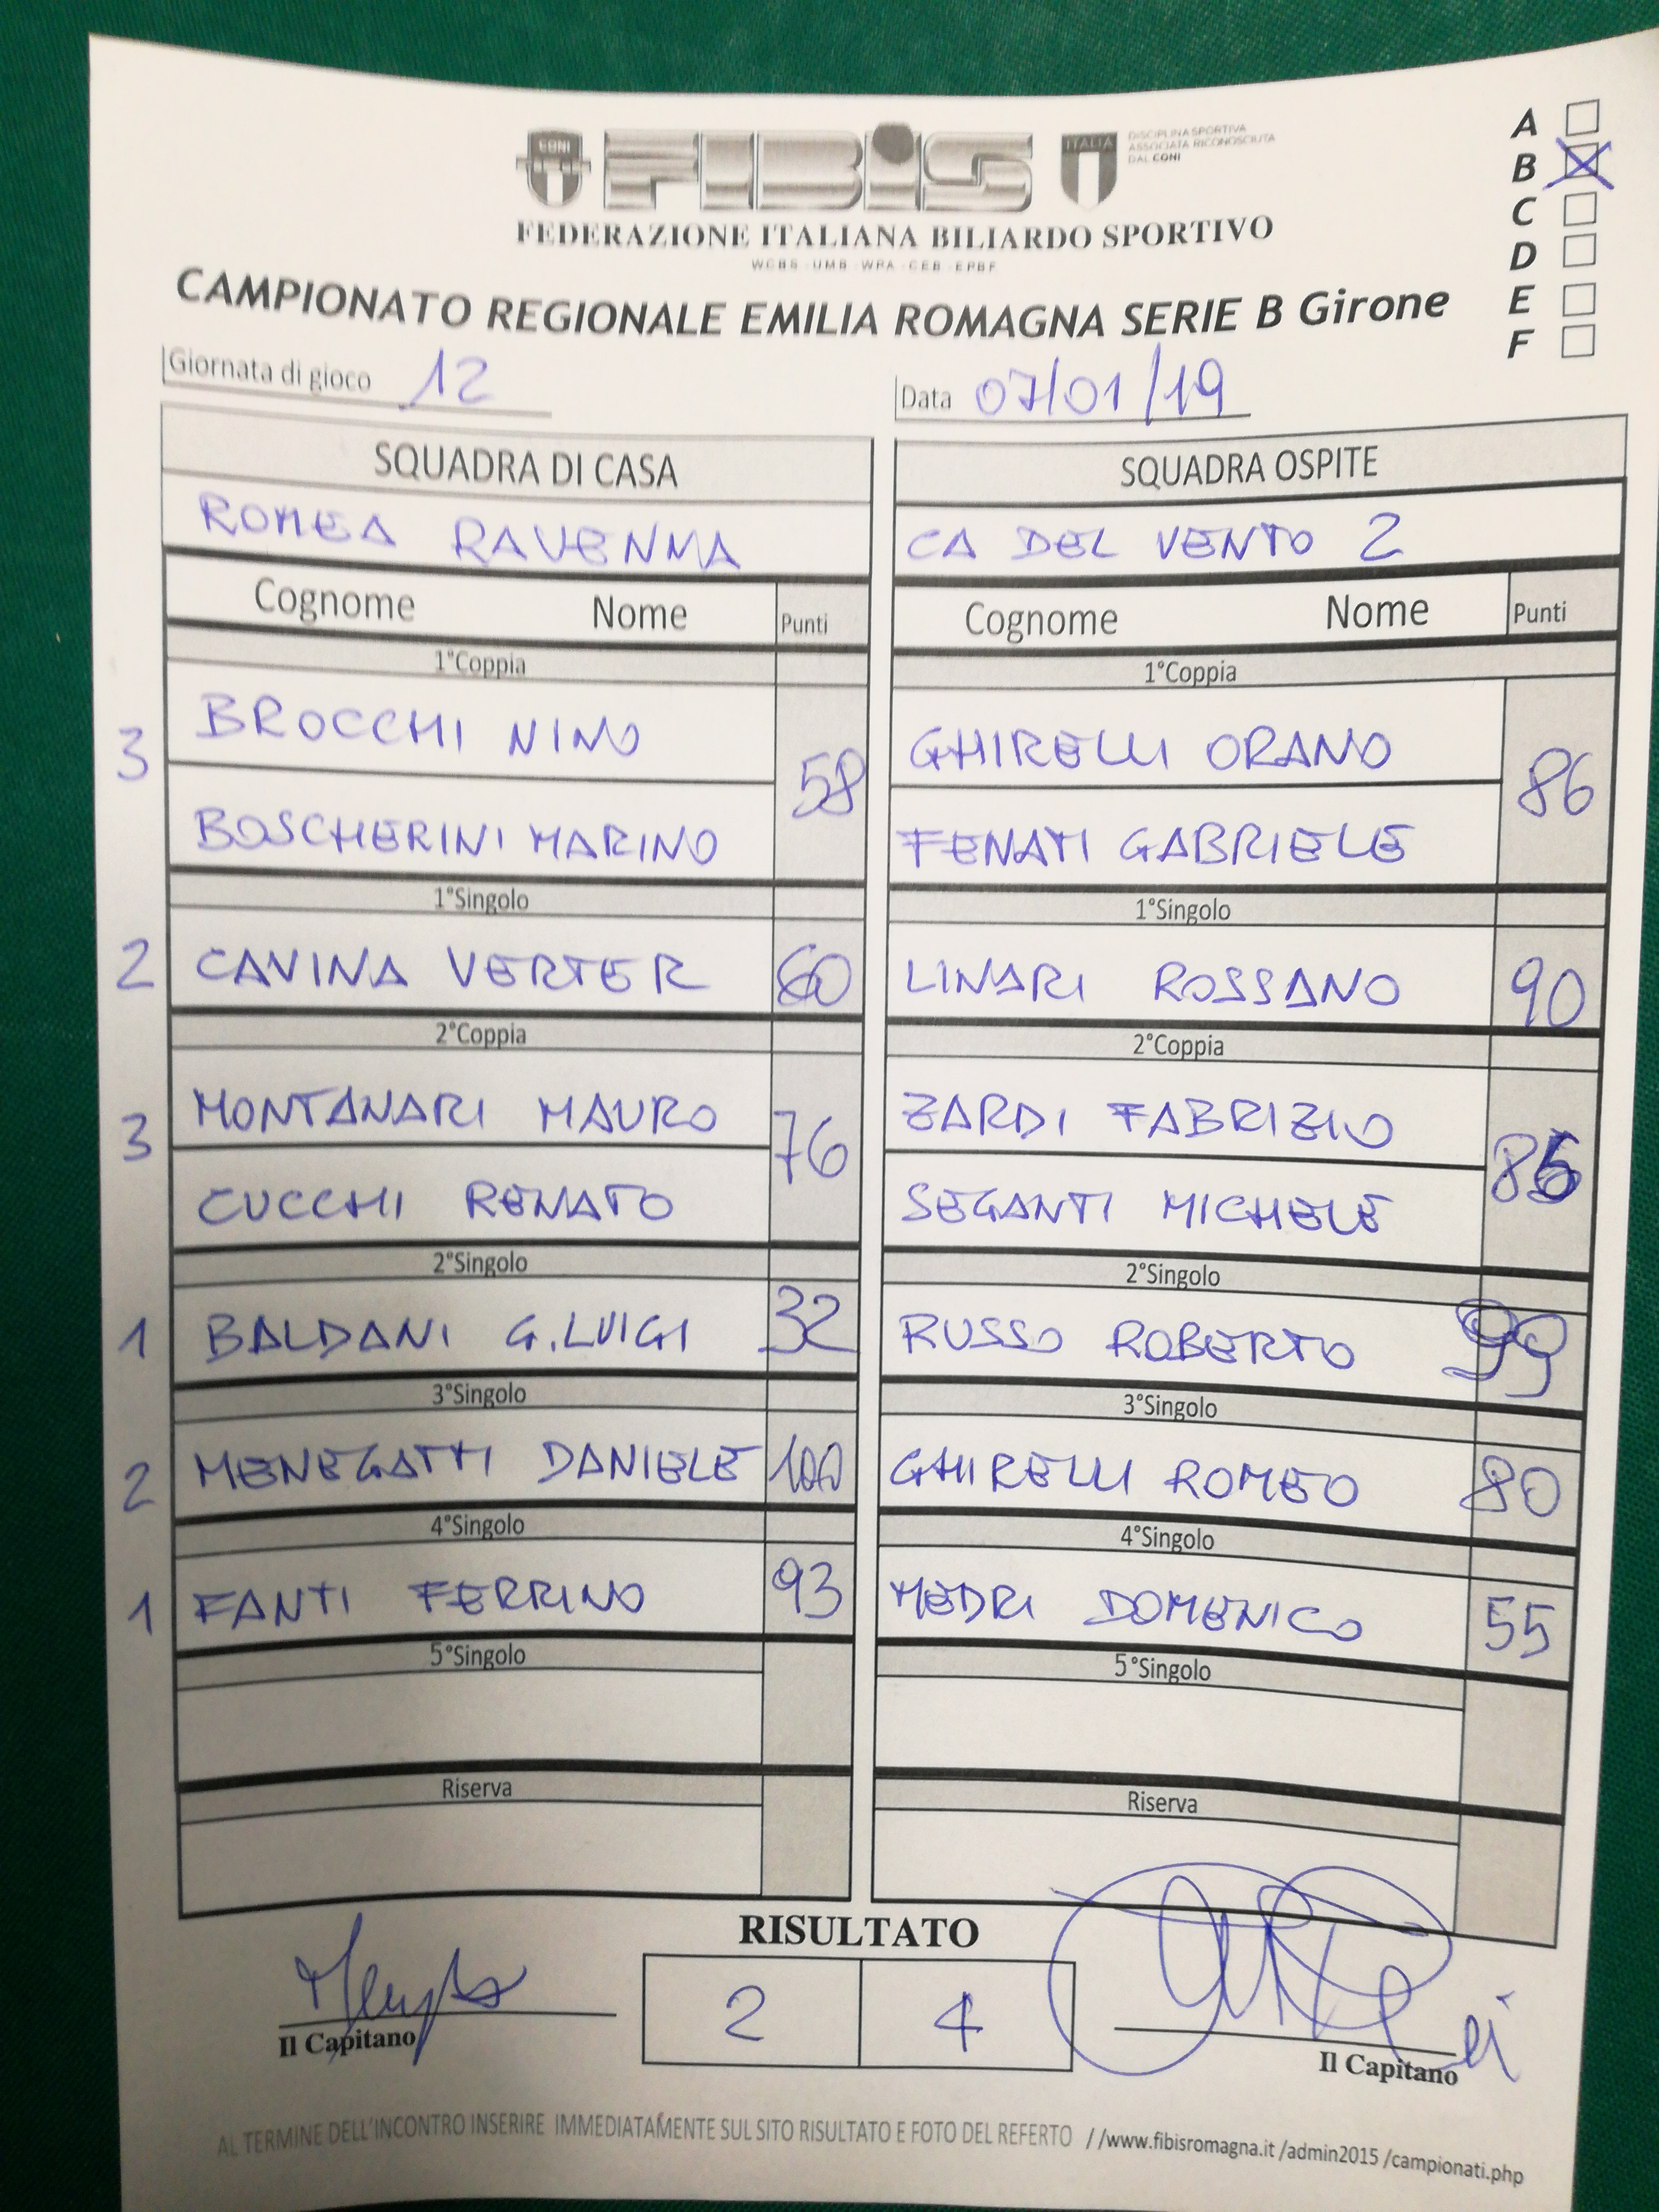 A
B
C
D
E
F
CONI
FIBiS
ITALIA
DISCIPLINA SPORTIVA
ASSOCIATA RICONOSCIUTA
DAL CONI
FEDERAZIONE ITALIANA BILIARDO SPORTIVO
WCBS - UMB - WPA - CEB - EPBF
CAMPIONATO REGIONALE EMILIA ROMAGNA SERIE B Girone
Giornata di gioco 12
Data 07/01/19
SQUADRA DI CASA
SQUADRA OSPITE
ROMEA RAVENNA
CA DEL VENTO 2
Cognome Nome Punti
Cognome Nome Punti
1°Coppia
1°Coppia
3 BROCCHI NINO
BOSCHERINI MARINO 58
GHIRELLI ORANO
FENATI GABRIELE 86
1°Singolo
1°Singolo
2 CAVINA VERTER 60
LINARI ROSSANO 90
2°Coppia
2°Coppia
3 MONTANARI MAURO
CUCCHI RENATO 76
ZARDI FABRIZIO
SEGANTI MICHELE
2°Singolo
2°Singolo
1 BALDANI G.LUIGI 32
RUSSO ROBERTO 99
3°Singolo
3°Singolo
2 MENEGATTI DANIELE 100
GHIRELLI ROMEO 80
4°Singolo
4°Singolo
1 FANTI FERRINO 93
MEDRI DOMENICO 55
5°Singolo
5°Singolo
Riserva
Riserva
RISULTATO
2 4
Il Capitano
Il Capitano
AL TERMINE DELL'INCONTRO INSERIRE IMMEDIATAMENTE SUL SITO RISULTATO E FOTO DEL REFERTO //www.fibisromagna.it /admin2015 /campionati.php